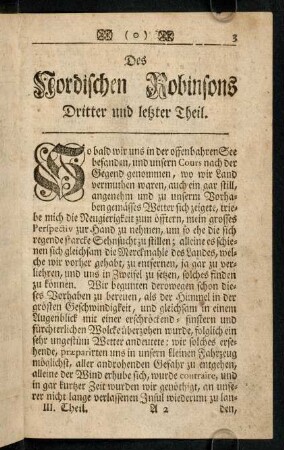 (o) 3
Des
Nordischen Robinsons
Dritter und letzter Theil.
So bald wir uns in der offenbahren See
befanden, und unsern Cours nach der
Gegend genommen, wo wir Land
vermuthen waren, auch ein gar still,
angenehm und zu unserm Vorha-
ben gemässes Wetter sich zeigete, trie-
be mich die Neugierigkeit zum öfftern, mein grosses
Perspectiv zur Hand zu nehmen, um so ehe die sich
regende starcke Sehnsucht zu stillen; alleine es schie-
nen sich gleichsam die Merckmahle des Landes, wel-
che wir vorher gehabt, zu entfernen, ja gar zu ver-
liehren, und uns in Zweifel zu setzen, solches finden
zu können. Wir begunten derowegen schon die-
ses Vorhaben zu bereuen, als der Himmel in der
grösten Geschwindigkeit, und gleichsam in einem
Augenblick mit einer erschröcklich-finstern und
fürchterlichen Wolcke überzohen wurde, folglich ein
sehr ungestüm Wetter andeutete: wie solches erse-
hende, præparirten uns in unsern kleinen Fahrzeug
möglichst, aller androhenden Gefahr zu entgehen,
alleine der Wind erhube sich, wurde contraire, und
in gar kurtzer Zeit wurden wir genöthigt, an unse-
rer nicht lange verlassenen Insul wiederum zu lan-
III. Theil. A 2 den,